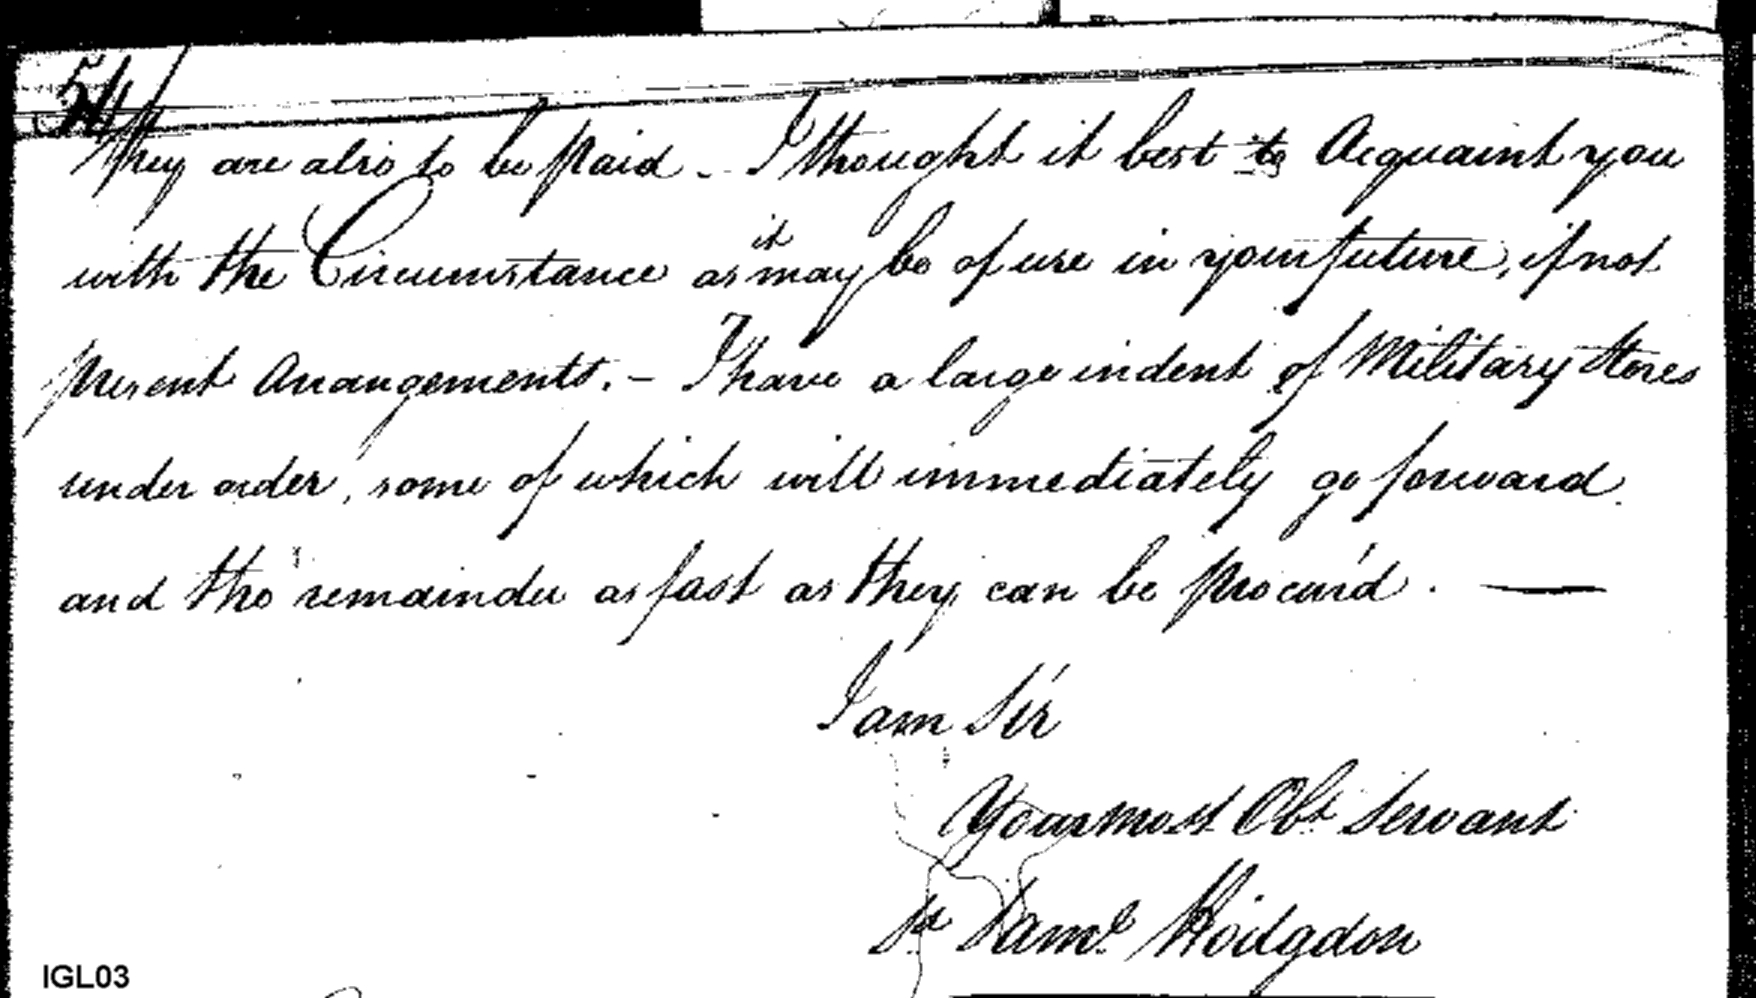 54
They are also to be paid. - I thought it best to Acquaint you
with the Circumstance as it may be of use in your future, if not
present Arrangements. - I have a large indent of Military Stores
under order, some of which will immediately go forward
and the remainder as fast as they can be procur'd. —
I am Sir
Your most Obt Servant
Saml Hodgdon
IGL03